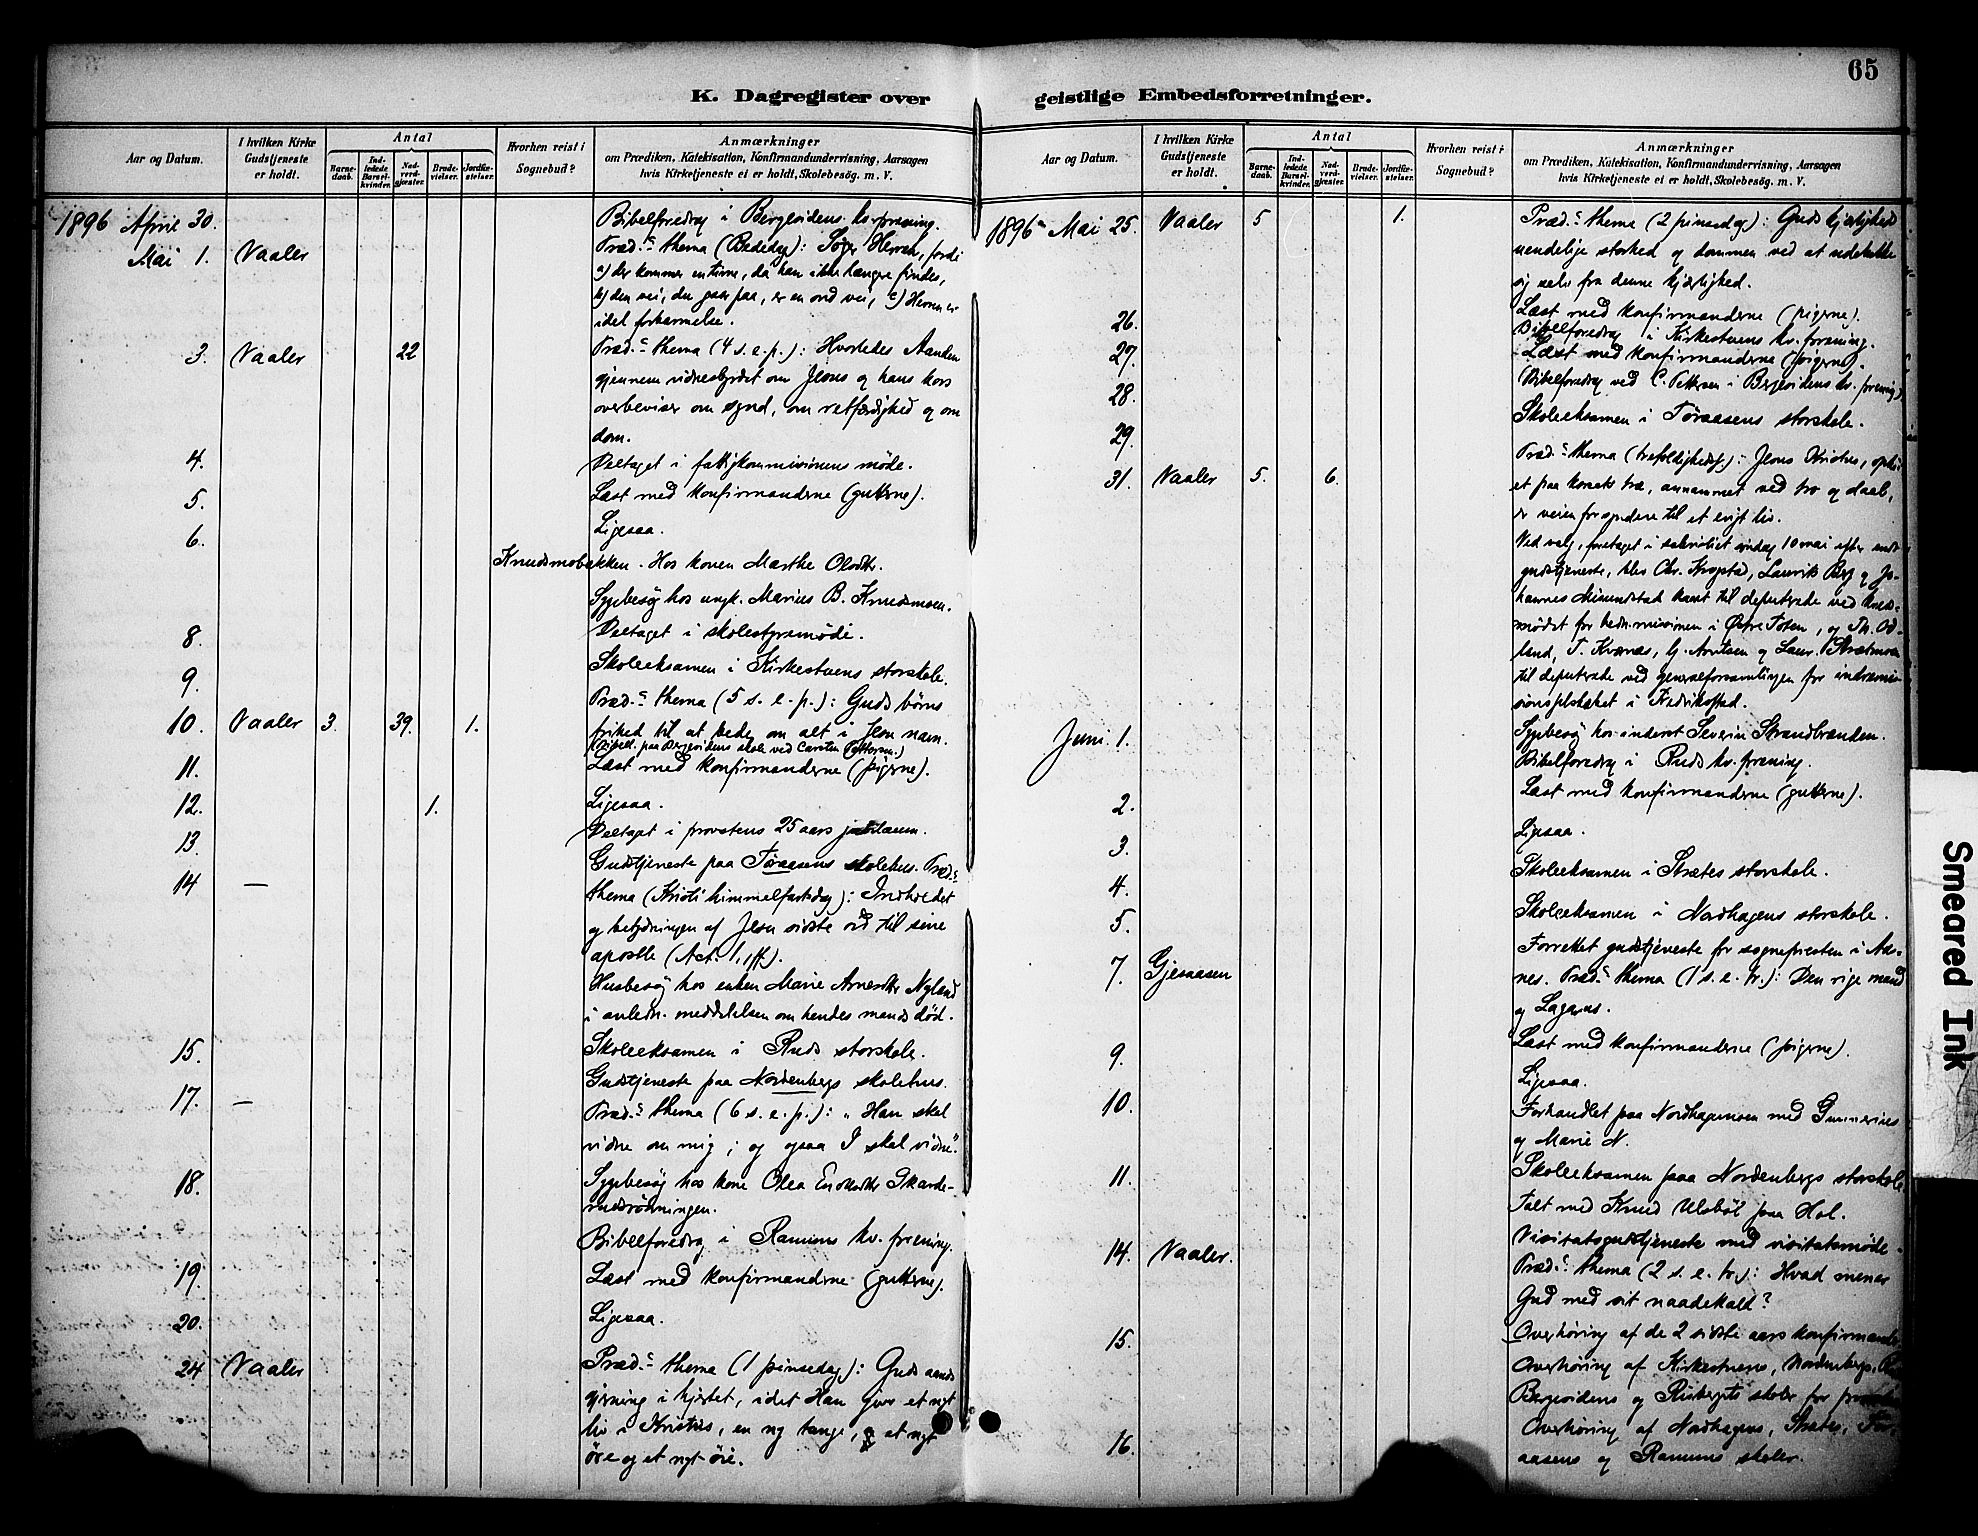 65
K. Dagregister over geistlige Embedsforretninger.
Aar og Datum.
I hvilken Kirke Gudstjeneste er holdt.
Antal
Barnedaab.
Indledede Barselkvinder.
Nadverdgjæster.
Brudevielser.
Jordfæstelser.
Hvorhen reist i Sognebud?
Anmærkninger
om Prædiken, Katekisation, Konfirmandundervisning, Aarsagen
hvis Kirketjeneste ei er holdt, Skolebesøg. m. V.
1896 April 30. Bibelforedrag i Bergevidens kv. forening.
Mai 1. Vaaler Præd.s thema (Bededag): Søger Herren, fordi
a) der kommer en time, da han ikke længre findes,
b) den vei, du gaar paa, er en ond vei, c) Herren er
idel forbarmelse.
3. Vaaler 22 Præd.s thema (4 s. e. p.): Hvorledes Aanden
gjennem vidnesbyrdet om Jesus og hans kors
overbeviser om synd, om retfærdighed og om
dom.
4. Deltaget i fattigkommissionens møde.
5. Læst med konfirmanderne (gutterne).
6. Ligesaa.
Knudsmobakken. Hos konen Marthe Olsdtr.
Sygebesøg hos ungk. Marius B. Knudsmoen.
8. Deltaget i skolestyremøde.
9. Skoleeksamen i Kirkestuens storskole.
10. Vaaler 3. 39. 1. Præd.s thema (5 s. e. p.): Guds børns
frihed til at bede om alt i Jesu navn.
(Bibell. paa Bergevidens skole ved Carsten Pettersen.)
11. Læst med konfirmanderne (pigerne).
12. 1. Ligesaa.
13. Deltaget i provstens 25 aars jubilæum.
14 — Gudstjeneste paa Toraasens skolehus. Præd.s
thema (Kristi himmelfartsdag): Indholdet
og betydningen af Jesu sidste ord til sine
apostle (Act. 1, 1ff).
Husbesøg hos enken Marie Arnesdtr Nyland
i anledn. meddelelsen om hendes mands død.
15. Skoleeksamen i Ruds storskole.
17. — Gudstjeneste paa Nordenbergs skolehus.
Præd.s thema (6 s. e. p.): „Han skal
vidne om mig; og ogsaa I skal vidne".
18. Sygebesøg hos kone Olea Enoksdtr Skande-
rudrydningen.
Bibelforedrag i Ramiens kv. forening.
19. Læst med konfirmanderne (gutterne).
20. Ligesaa.
24 Vaaler Præd.s thema (1 pinsedag): Guds aands
gjerning i hjertet, idet Han giver et nyt
liv i Kristus, en ny tunge, og et nyt
øre og et nyt øie.
Aar og Datum.
I hvilken Kirke Gudstjeneste er holdt.
Antal
Barnedaab.
Indledede Barselkvinder.
Nadverdgjæster.
Brudevielser.
Jordfæstelser.
Hvorhen reist i Sognebud?
Anmærkninger
om Prædiken, Katekisation, Konfirmandundervisning, Aarsagen
hvis Kirketjeneste ei er holdt, Skolebesøg. m. V.
1896 Mai 25. Vaaler 5 1. Præd.s thema (2 pinsedag): Guds kjærligheds
uendelige storhed og dommen ved at udelukke
sig selv fra denne kjærlighed.
26. Læst med konfirmanderne (pigerne).
Bibelforedrag i Kirkestuens kv. forening.
27. Læst med konfirmanderne (pigerne).
28. (Bibelforedrag ved C. Pettersen i Bergevidens kv. forening)
29. Skoleeksamen i Toraasens storskole.
31. Vaaler 5. 6. Præd.s thema (trefoldighedsf.): Jesus Kristus, ophøi-
et paa korsets træ, annammet ved tro og daab,
er veien for syndere til et evigt liv.
Ved valg, foretaget i sakristiet søndag 10 mai efter endt
gudstjeneste, blev Chr. Krogstad, Laurits Berg og Jo-
hannes Mellumstad kaaret til deputerede ved kreds-
mødet for hedn. missionen i Østre Toten, og Th. Od-
land, T. Kværnæs, G. Arntsen og Laur. Strætmoen
til deputerede ved generalforsamlingen for indremis-
sionsselskabet i Fredrikstad.
Juni 1. Sygebesøg hos inderst Severin Strandbrænden.
Bibelforedrag i Ruds kv. forening.
2. Læst med konfirmanderne (gutterne).
3. Ligesaa.
4. Skoleeksamen i Strætes storskole.
5. Skoleeksamen i Nordhagens storskole.
7. Gjesaasen Forrettet gudstjeneste for sognepresten i Aas-
nes. Præd.s thema (1 s. e. tr.): Den rige mand
og Lazarus.
9. Læst med konfirmanderne (pigerne).
10. Ligesaa.
Forhandlet paa Nordhagmoen med Gunnerius
og Marie N.
11. Skoleeksamen paa Nordenbergs storskole
Talt med Knud Ulsbøl paa Hol.
14. Vaaler. Visitatsgudstjeneste med visitatsmøde.
Præd.s thema (2 s. e. tr.): Hvad mener
Gud med sit naadekald?
15. Overhøring af de 2 sidste aars konfirmander
Overhøring af Kirkestuens, Nordenbergs,
Bergevidens og Risbergets skoler for
16. Overhøring af Nordhagens, Strætes, Tor-
aasens og Ramiens skoler.
Smeared Ink